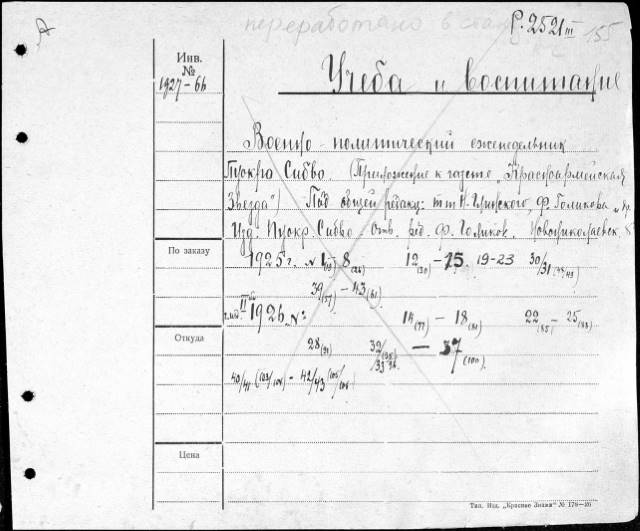 переработано в
Р. 2521 III 155
Инв.
№
1927-66
Учеба и воспитание
Военно-политический еженедельник
Пуокра Сибво. (Приложение к газете "Красноармейская
Звезда") Под общей редакц: т.т. Н. Глинского, Ф. Голикова и др.
Изд. Пуокр. Сибво. Отв. ред. Ф. Голиков. Новониколаевск.
По заказу
1925 г. № 1(19) 8(26) 12(30) - 15 19-23 30/31(48/49)
39(57) - 43(61)
II
г. изд. 1926 №: 14(77) - 18(81) 22(85) - 25(88)
Откуда
28(91) 32/33 - 37(100)
40/41 (103/104) - 42/43 (105/106)
Цена
Тип. Изд. „Красное Знамя" № 178—26